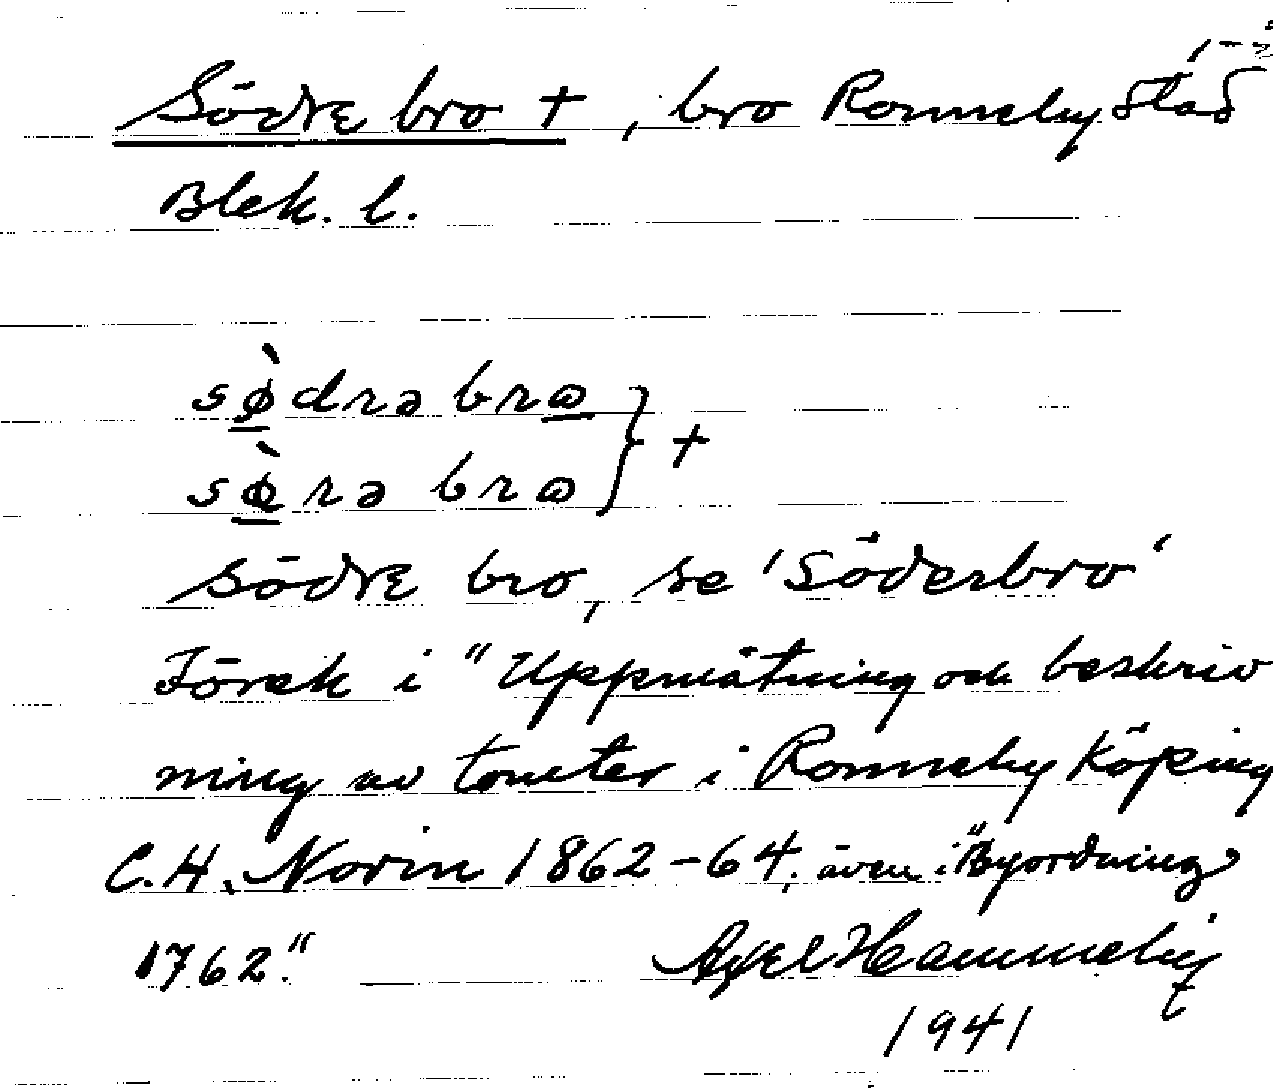 Södre bro +, bro Ronneby stad
Blek. l.
sø̀drə brɷ } +
sø̀rə brɷ
Södre bro, se 'Söderbro'
Förek i "Uppmätning och beskriv
ning av tomter i Ronneby Köping
C.H. Norin 1862-64, även i "Byordning
1762."
Axel Hammelin
1941